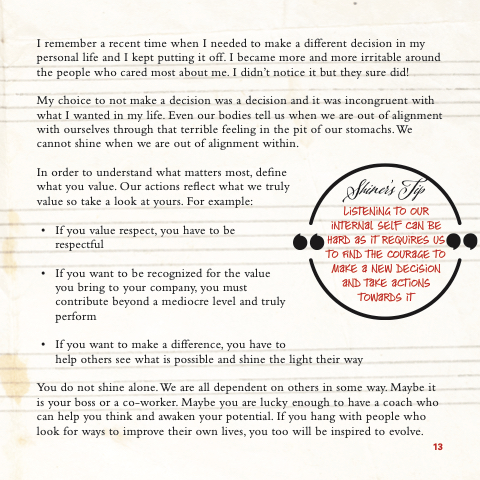 I remember a recent time when I needed to make a different decision in my
personal life and I kept putting it off. I became more and more irritable around
the people who cared most about me. I didn't notice it but they sure did!
My choice to not make a decision was a decision and it was incongruent with
what I wanted in my life. Even our bodies tell us when we are out of alignment
with ourselves through that terrible feeling in the pit of our stomachs. We
cannot shine when we are out of alignment within.
In order to understand what matters most, define
what you value. Our actions reflect what we truly
value so take a look at yours. For example:
• If you value respect, you have to be
respectful
• If you want to be recognized for the value
you bring to your company, you must
contribute beyond a mediocre level and truly
perform
• If you want to make a difference, you have to
help others see what is possible and shine the light their way
Shiner's Tip
LISTENING TO OUR
INTERNAL SELF CAN BE
HARD AS IT REQUIRES US
TO FIND THE COURAGE TO
MAKE A NEW DECISION
AND TAKE ACTIONS
TOWARDS IT
You do not shine alone. We are all dependent on others in some way. Maybe it
is your boss or a co-worker. Maybe you are lucky enough to have a coach who
can help you think and awaken your potential. If you hang with people who
look for ways to improve their own lives, you too will be inspired to evolve.
13